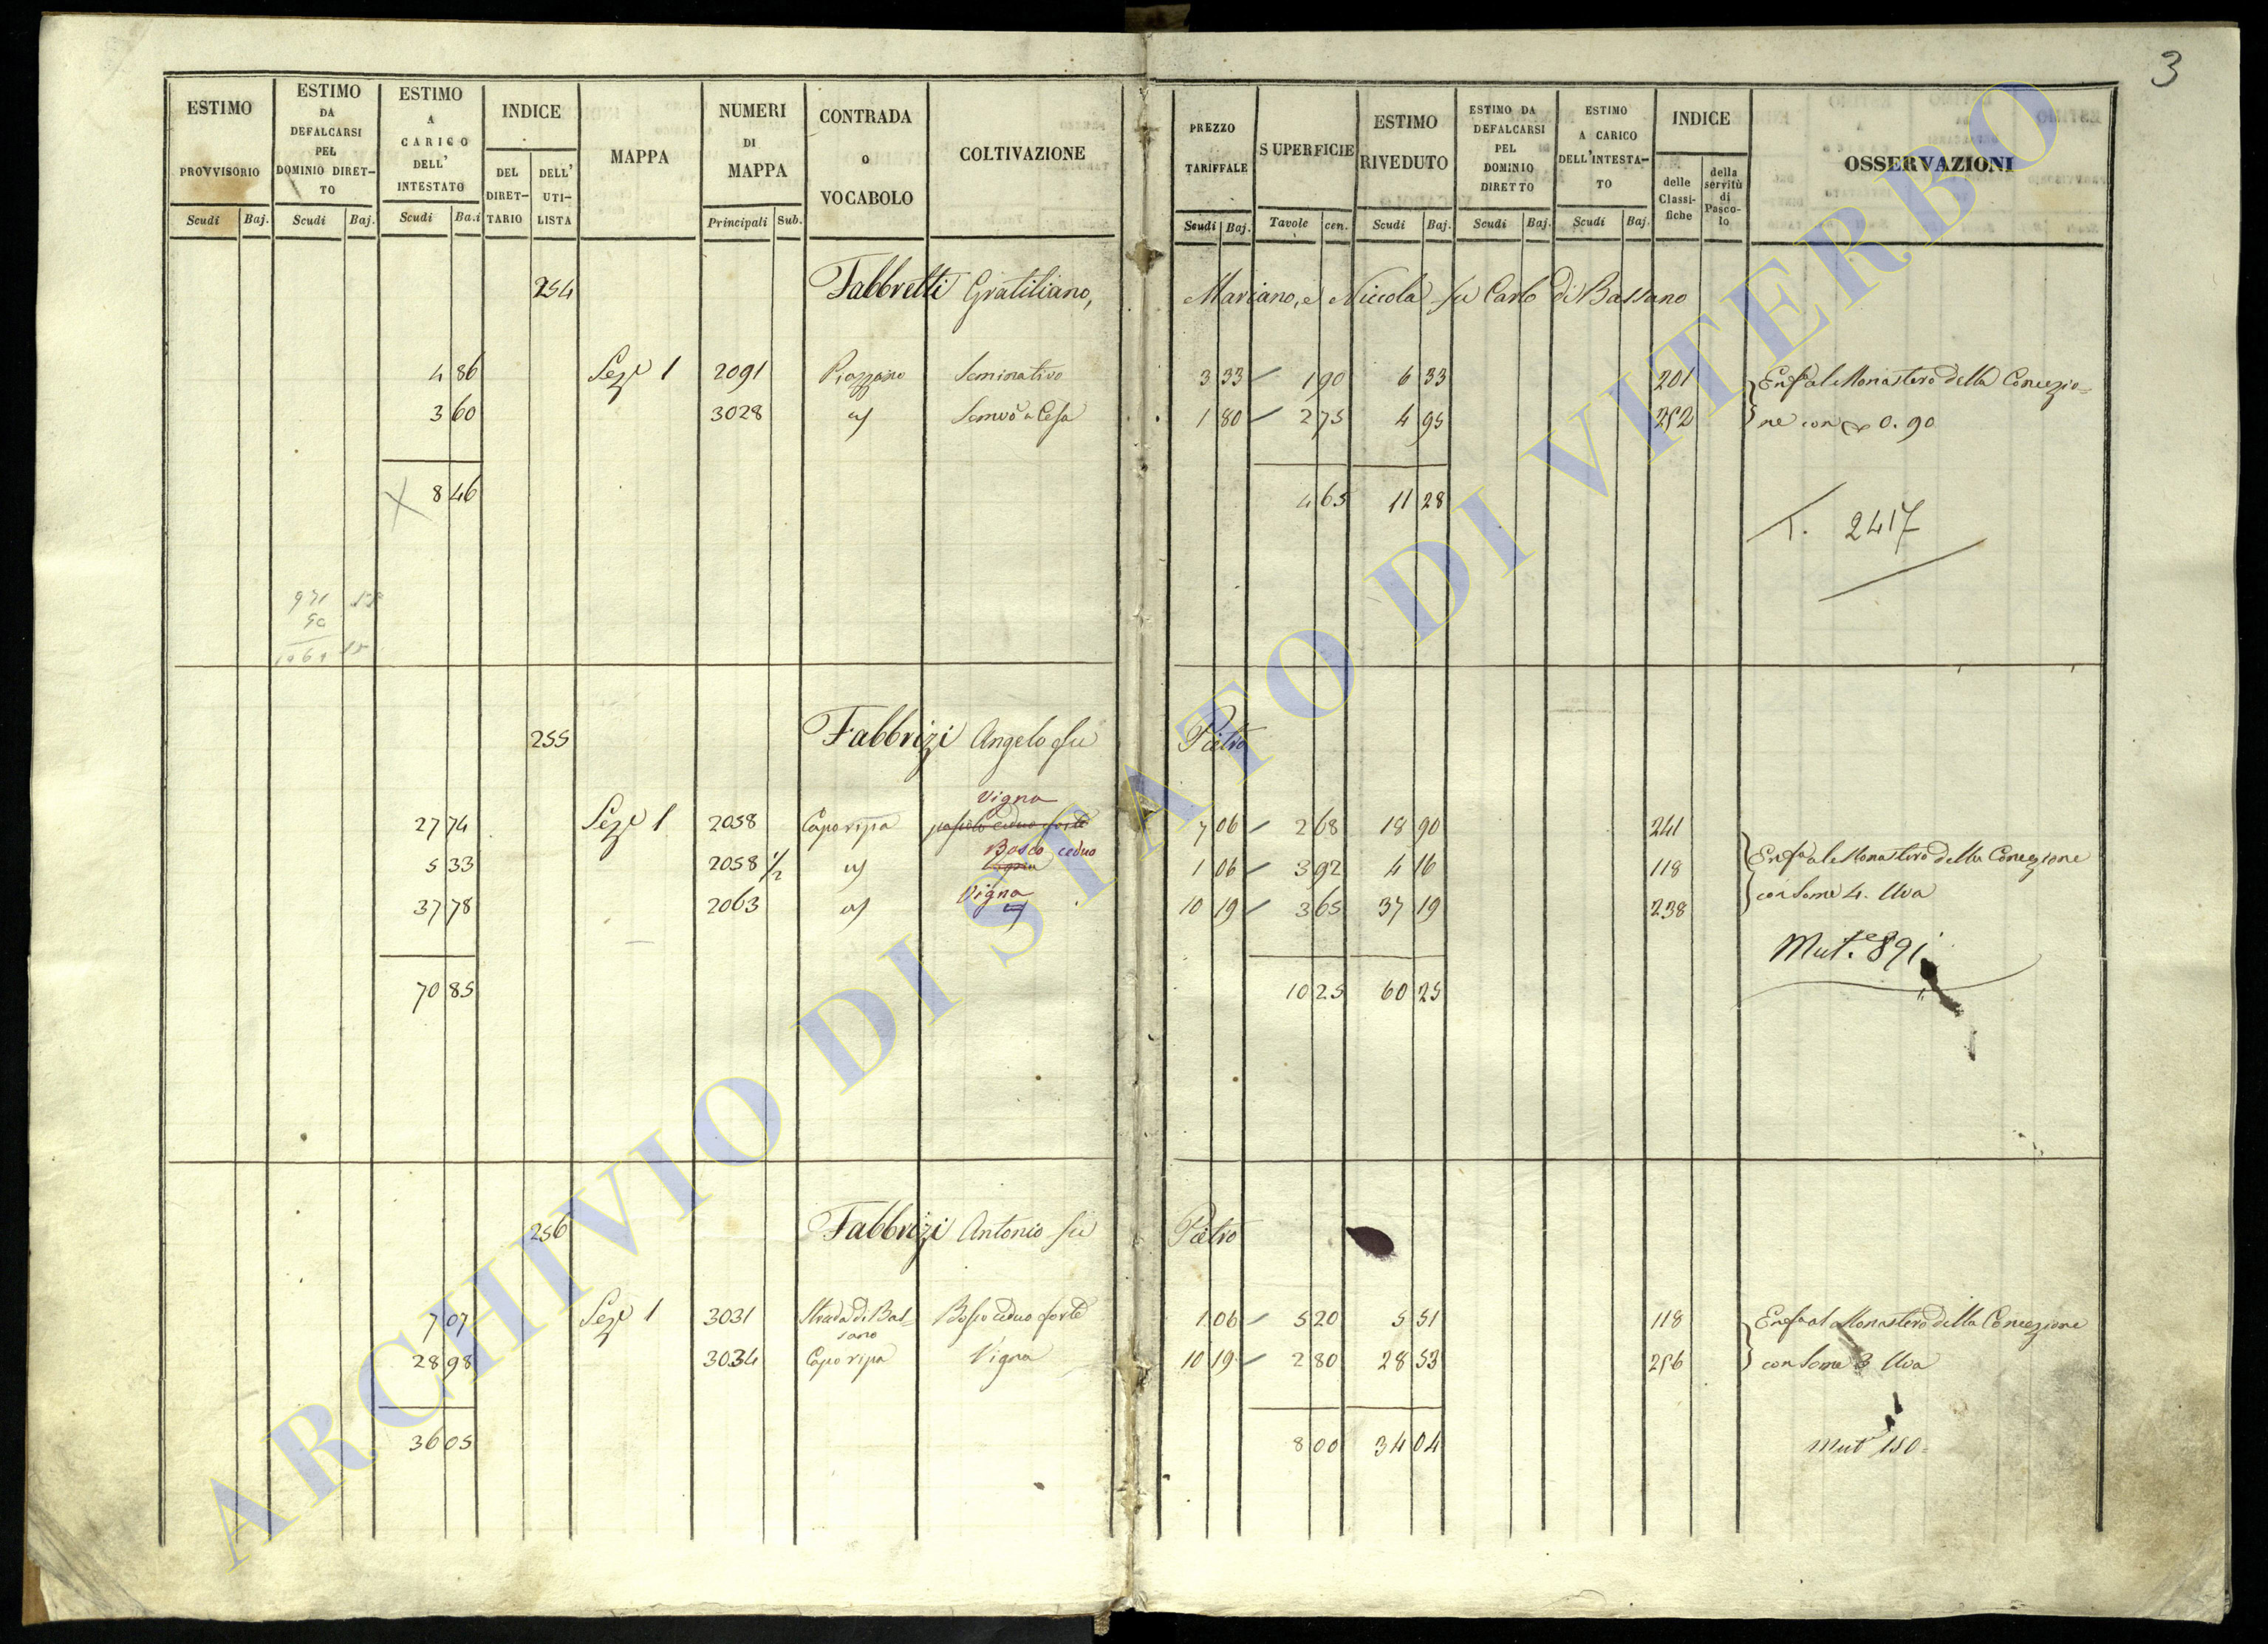 3
ESTIMO PROVVISORIO
ESTIMO DA DEFALCARSI PEL DOMINIO DIRET-TO
ESTIMO A CARICO DELL' INTESTATO
INDICE
DEL DIRET-TARIO
DELL' UTI-LISTA
MAPPA
NUMERI DI MAPPA
CONTRADA o VOCABOLO
COLTIVAZIONE
PREZZO TARIFFALE
SUPERFICIE
ESTIMO RIVEDUTO
ESTIMO DA DEFALCARSI PEL DOMINIO DIRETTO
ESTIMO A CARICO DELL'INTESTA-TO
INDICE
delle Classi-fiche
della servitù di Pasco-lo
OSSERVAZIONI
Scudi Baj. Scudi Baj. Scudi Ba.i Principali Sub. Scudi Baj. Tavole cen. Scudi Baj. Scudi Baj. Scudi Baj.
254 Fabbretti Gratiliano, Mariano, e Niccola fu Carlo di Bassano
4 86 Seze 1 2091 Piazzano Seminativo 3 33 1 90 6 33 201 Enfa al Monastero della Concezio=
3 60 3028 Semvo a Cesa 1 80 2 75 4 95 252 ne con 0.90
8 46 4 65 11 28
T. 2417
255 Fabbrizi Angelo fu Pietro
Vigna
27 74 Seze 1 2058 Caporipa pascolo ceduo forte 7 06 2 68 18 90 241
Bosco ceduo
5 33 2058 1/2 Vigna 1 06 3 92 4 16 118 Enfa al Monastero della Concezione
Vigna
37 78 2063 10 19 3 65 37 19 238 con Some 4. Uva
Mut.e 891
70 85 10 25 60 25
256 Fabbrizi Antonio fu Pietro
7 07 Seze 1 3031 Strada di Bas=sano Bosco ceduo forte 1 06 5 20 5 51 118 Enfa al Monastero della Concezione
28 98 3034 Caporipa Vigna 10 19 2 80 28 53 256 con Some 3 Uva
36 05 8 00 34 04 Mute 150=
ARCHIVIO DI STATO DI VITERBO